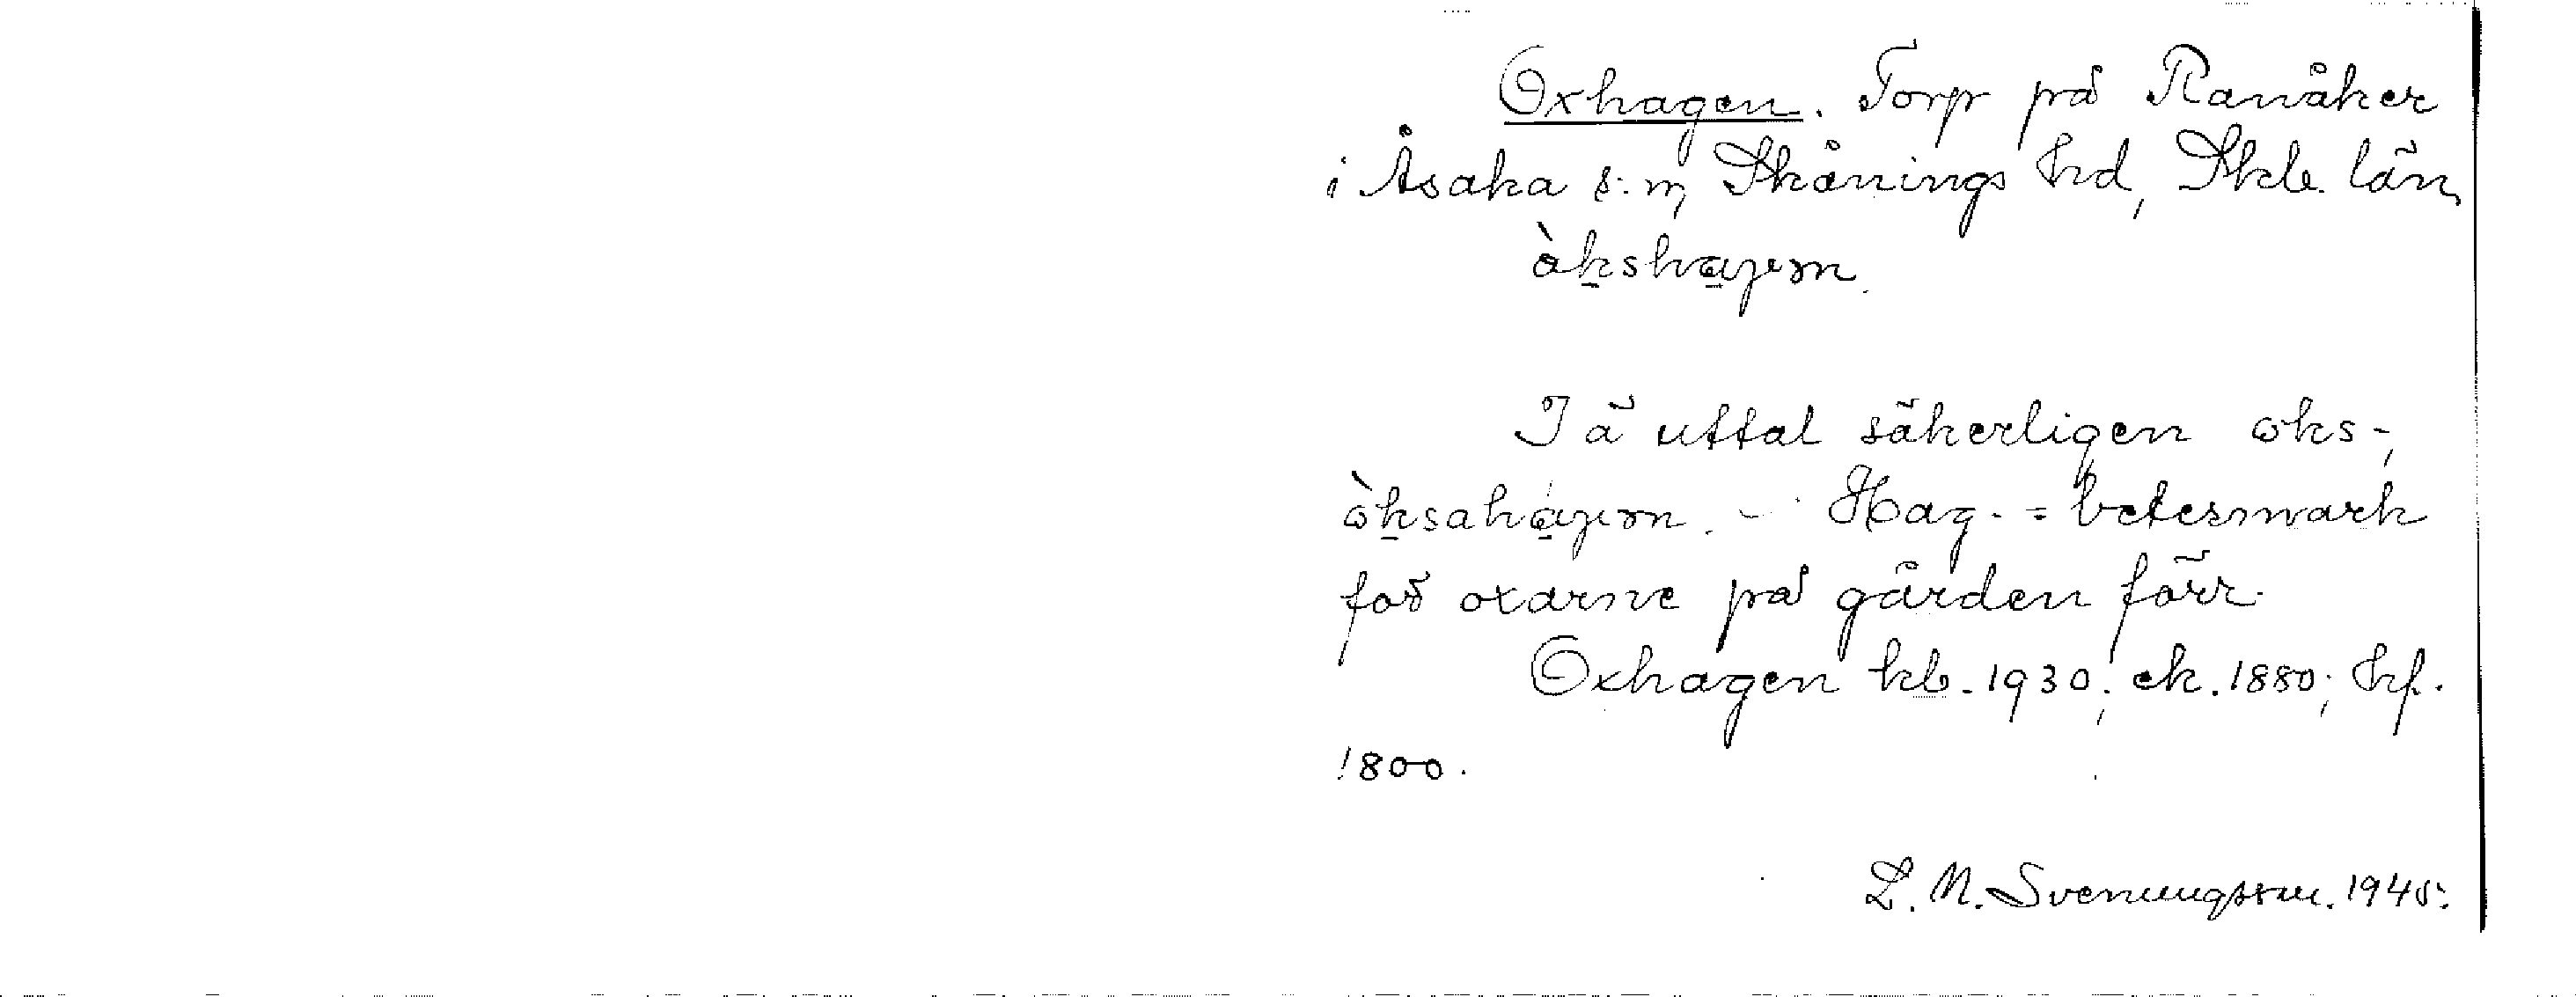 Oxhagen. Torp på Ranåker
i Åsaka s:n, Skånings hd, Skb. län
òkshaγen.
I ä uttal säkerligen oks-,
òksahaγen. - Hag- = betesmark
för oxarne på gården förr.
Oxhagen kb. 1930; ek. 1880; hf.
1800.
L. N. Svenungsson. 1945.